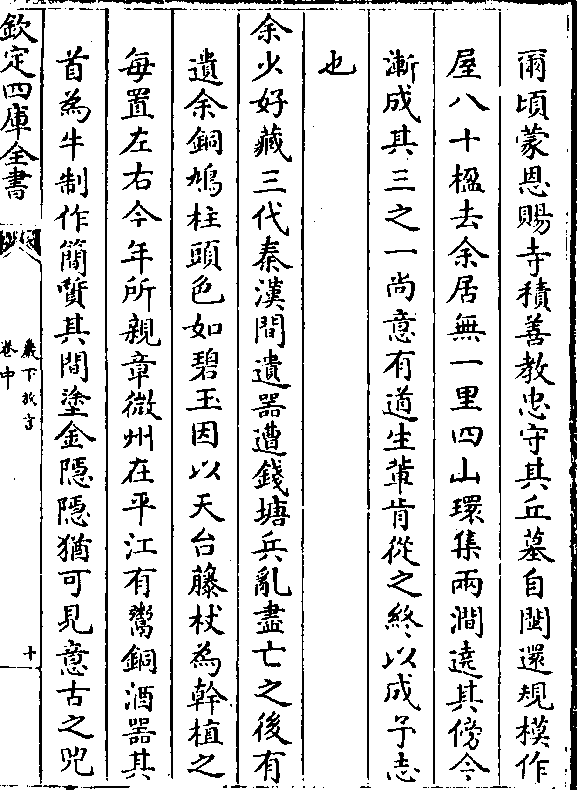 爾頃蒙恩賜寺積善教忠守其丘墓自閩還規模作
屋八十楹去余居無一里四山環集兩澗遶其傍今
漸成其三之一尚意有道生輩肯從之終以成予志
也
余少好藏三代秦漢間遺器遭錢塘兵亂盡亡之後有
遺余銅鳩柱頭色如碧玉因以天台藤杖為幹植之
每置左右今年所親章徽州在平江有鬻銅酒器其
首為牛制作簡質其間塗金隱隱猶可見意古之兕
欽定四庫全書
巖下放言
卷中
十